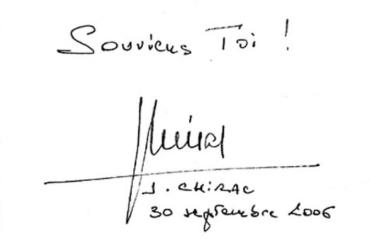 Souviens Toi !
J. CHIRAC
30 septembre 2006